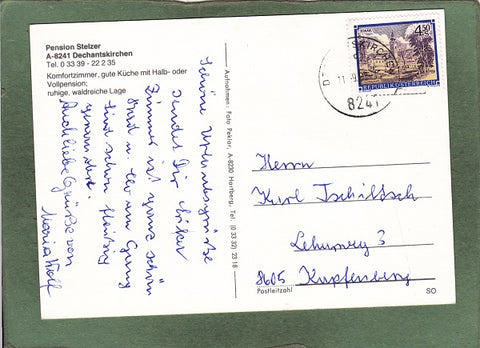 Pension Stelzer
A-8241 Dechantskirchen
Tel. 0 33 39 - 22 2 35
Komfortzimmer, gute Küche mit Halb- oder
Vollpension;
ruhige, waldreiche Lage
Schöne Urlaubsgrüße
sendet Dir
Zimmer ist ganz schön
sind schon fleißig
gewandert.
Auch liebe Grüße von
Maria Wolf
Aufnahmen: Foto Pekler, A-8230 Hartberg, Tel. (0 33 32) 23 18
STAMS
4.50
REPUBLIK ÖSTERREICH
8241
Herrn
Karl Tschiltsch
Lehurweg 3
8605 Kapfenberg
Postleitzahl
SO